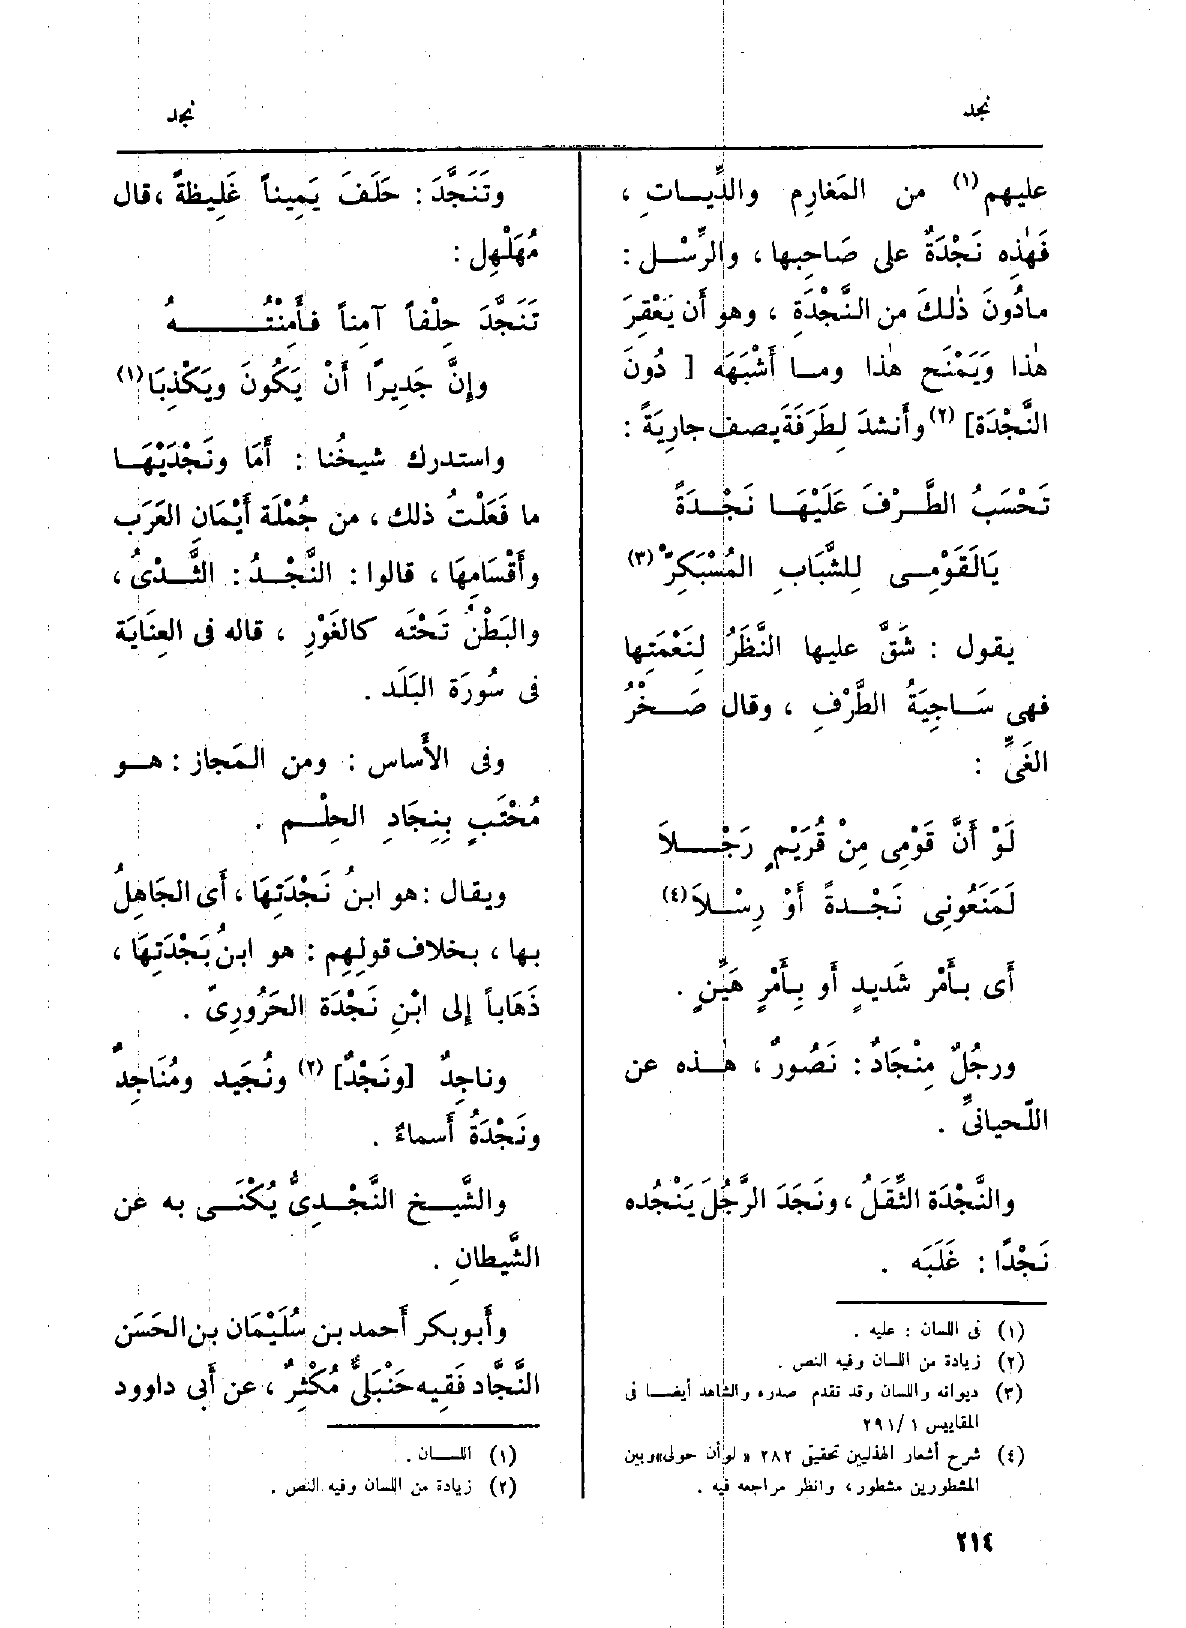 نجد
نجد
عليهم (١) من المَغارِم والدِّيـاتِ ،
فَهٰذِه نَجْدَةٌ على صَاحِبها ، والرِّسْـل :
مادُونَ ذٰلكَ من النَّجْدَةِ ، وهو أَن يَعْقِرَ
هٰذا وَيَمْنَح هٰذا ومـا أَشْبَهَه [ دُونَ
النَّجْدَة] (٢) وأَنشدَ لِطَرَفَةَ يصف جاريَةً :
تَحْسَبُ الطَّـرْفَ عَلَيْهَـا نَجْـدَةً
يَالَقَوْمِـى لِلشَّبَابِ المُسْبَكِرّْ (٣)
يقول : شَقَّ عليها النَّظَرُ لِنَعْمَتِها
فهى سَـاجِيَةُ الطَّرْفِ ، وقال صَـخْرُ
الغَىِّ :
لَوْ أَنَّ قَوْمِى مِنْ قُرَيْمٍ رَجْـلاَ
لَمَنَعُونِى نَجْـدةً أَوْ رِسْـلاَ (٤)
أَى بـأَمْر شَديدٍ أَو بِـأَمْرٍ هَيِّنٍ .
ورجُلٌ مِنْجَادٌ : نَصُورٌ ، هـذه عن
اللّحيانىِّ .
والنَّجْدَة الثِّقَلُ ، ونَجَدَ الرَّجُلَ يَنْجُده
نَجْدًا : غَلَبَه .
(١) فى اللسان : عليه .
(٢) زيادة من اللسان وفيه النص .
(٣) ديوانه واللسان وقد تقدم صدره والشاهد أيضـا فى
المقاييس ١/ ٢٩١
(٤) شرح أشعار الهذليين تحقيق ٢٨٢ « لو أن حولى» وبين
المشطورين مشطور ، وانظر مراجعه فيه .
وتَنَجَّدَ : حَلَفَ يَمِيناً غَلِيظةً ، قال
مُهَلْهِل :
تَنَجَّدَ حِلْفاً آمِناً فأَمِنْتُـــــهُ
وإِنَّ جَدِيرًا أَنْ يَكُونَ ويَكْذِبَا (١)
واستدرك شيخُنا : أَمَا ونَجْدَيْهَـا
ما فَعَلْتُ ذلك ، من جُمْلَة أَيْمَانِ العَرَب
وأَقْسَامِهَا ، قالوا : النَّجْـدُ : الثَّـدْىُ ،
والبَطْنُ تَحْتَه كالغَوْرِ ، قاله فى العِنَايَة
فى سُورَة البَلَد .
وفى الأَساس : ومن المَجاز : هـو
مُحْتَبٍ بِنِجَادِ الحِلْـم .
ويقال : هو ابنُ نَجْدَتِهَا ، أَى الجَاهِلُ
بها ، بخلاف قولِهِم : هو ابنُ بَجْدَتِهَا ،
ذَهَاباً إِلى ابْنِ نَجْدَة الحَرُورِىّ .
وناجِدٌ [ونَجْدٌ] (٢) ونُجَيد ومُنَاجِدٌ
ونَجْدَةُ أَسماءٌ .
والشَّيـخ النَّجْـدِىُّ يُكْنَـى به عن
الشَّيطانِ .
وأَبوبكر أَحمد بن سُلَيْمَان بن الحَسَن
النَّجَّاد فَقِيه حَنْبَلِىٌّ مُكْثِرٌ ، عن أَبى داوود
(١) اللسـان .
(٢) زيادة من اللسان وفيه النص .
٢١٤